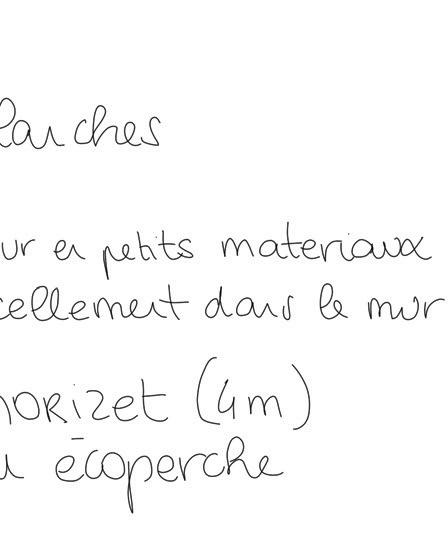 lanches
ur en petits materiaux
cellement dans le mur
orizet (4m)
u écoperche